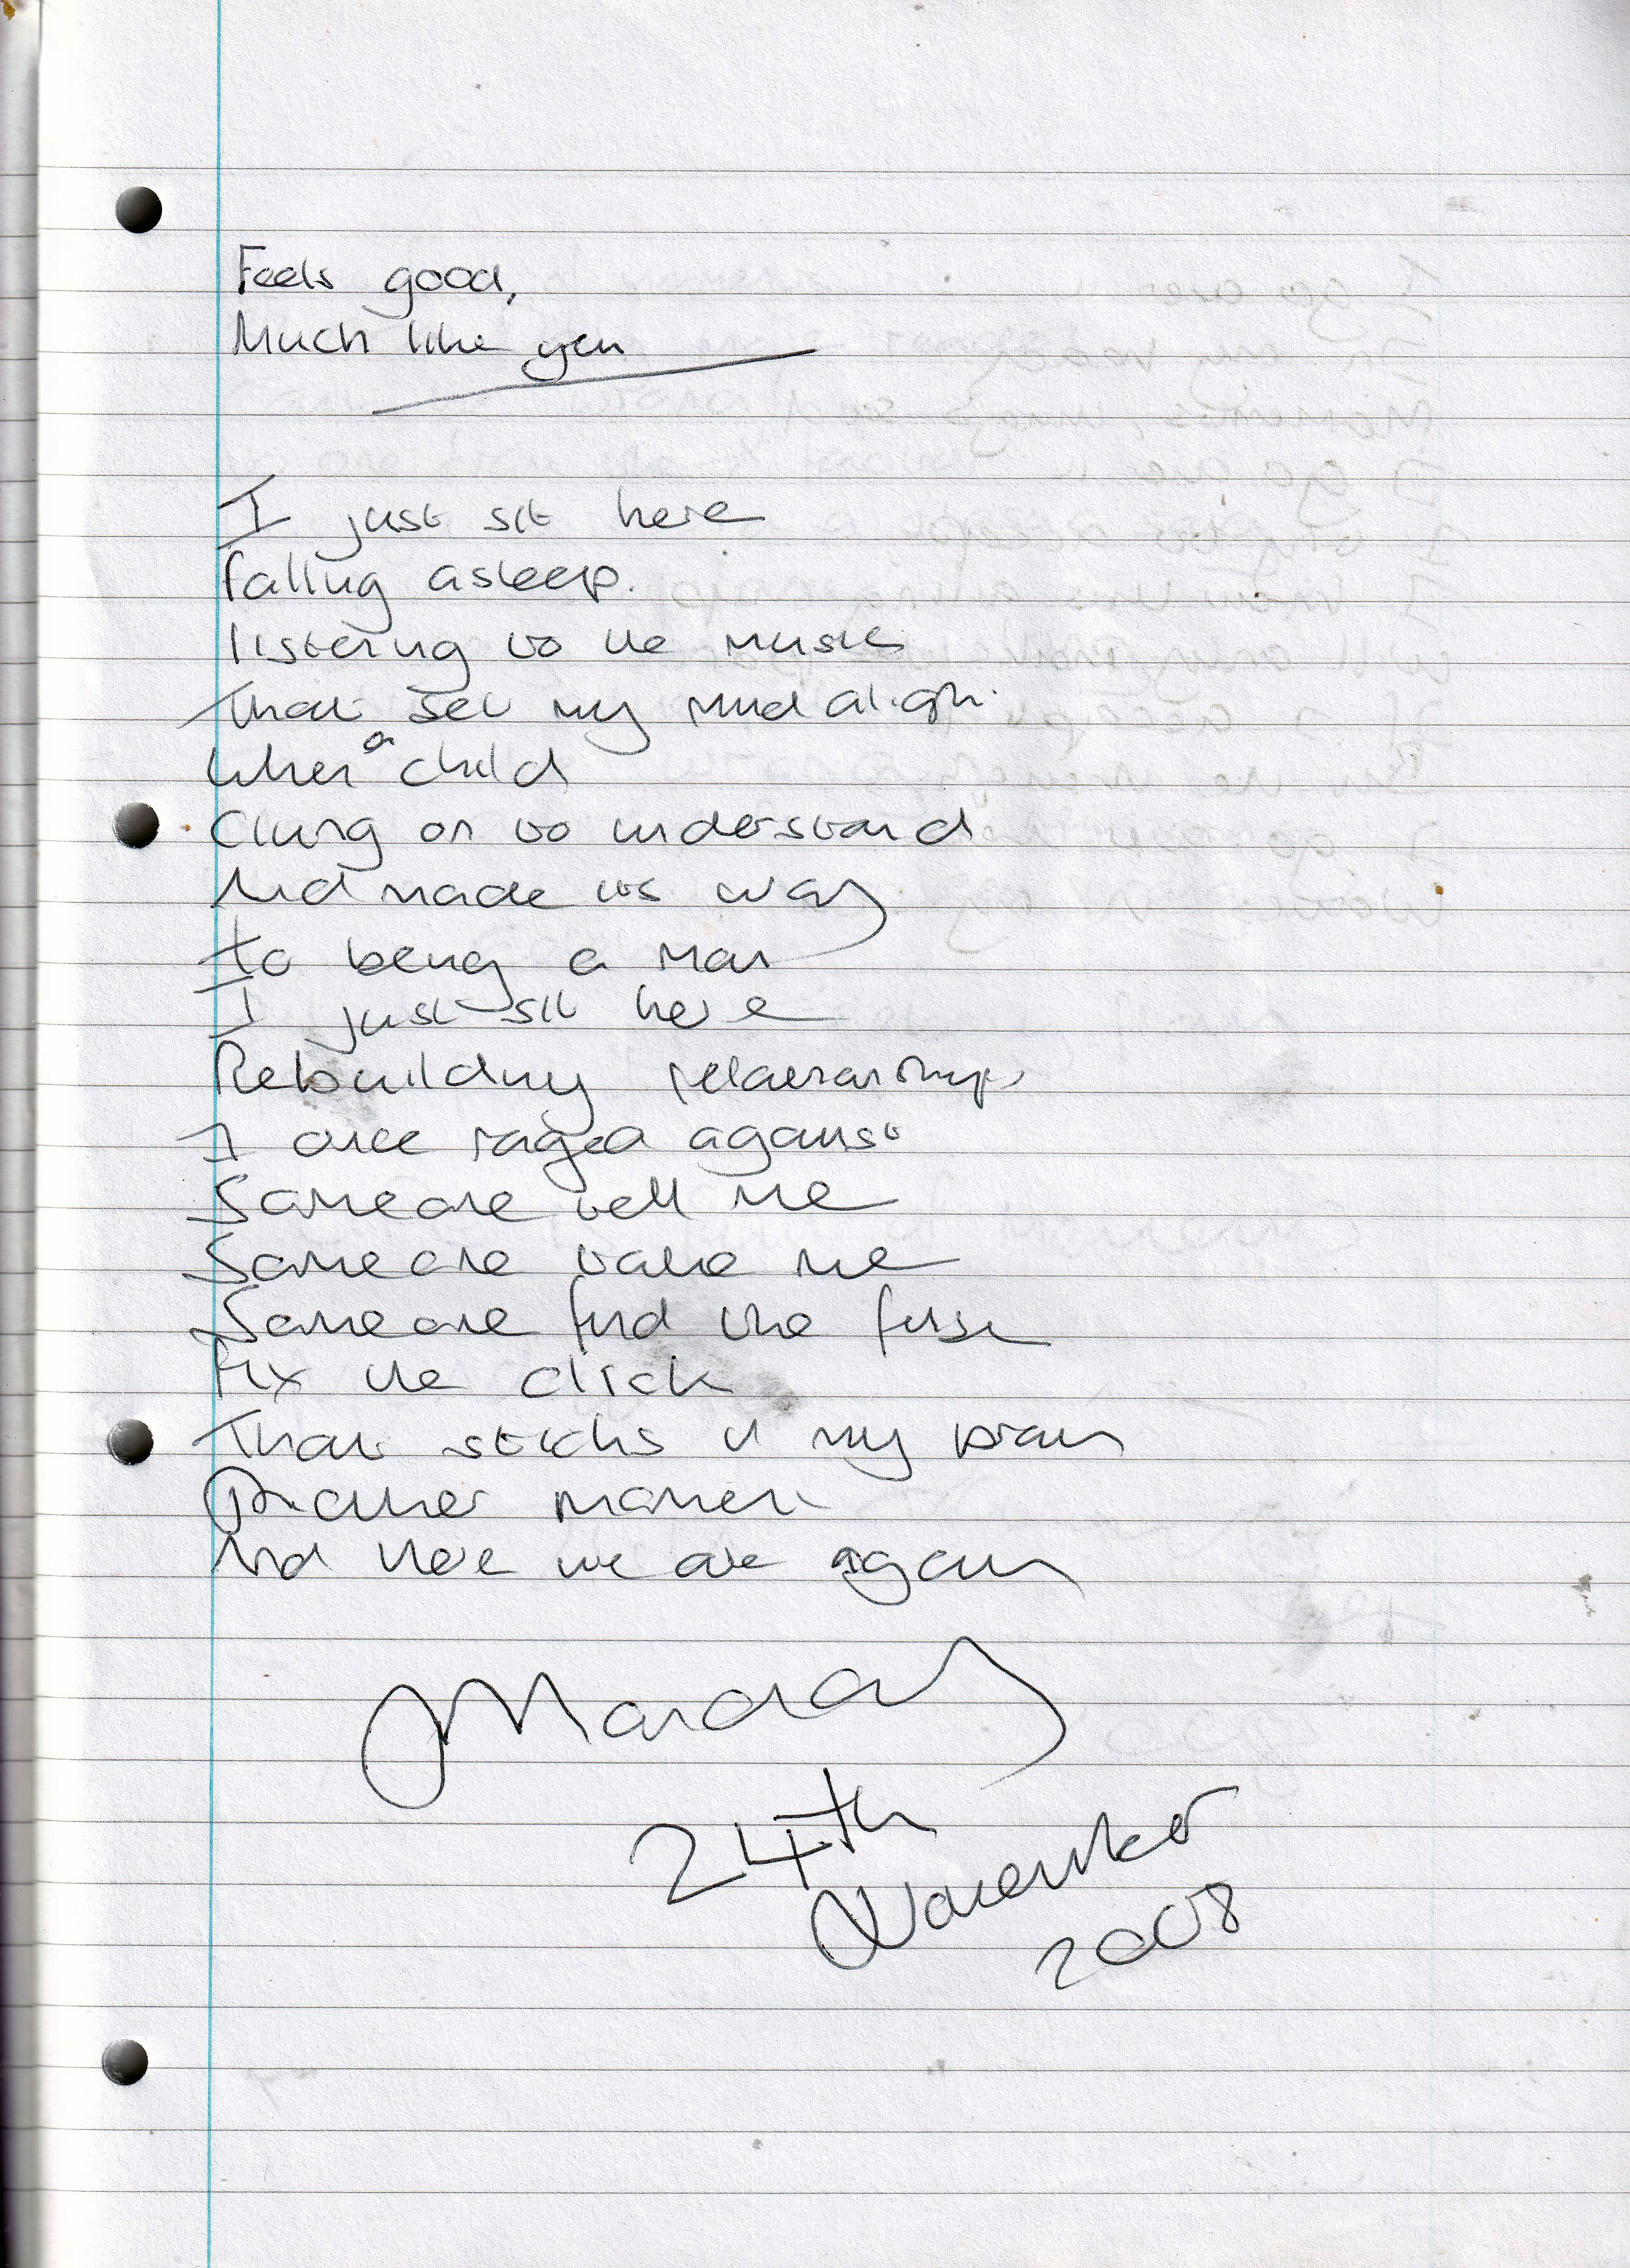 Feels good,
Much like you
I just sit here
falling asleep.
listening to the music
That set my mind alight.
When a child
Clung on to understand
And made its way
to being a man
I just sit here
Rebuilding relationships
I once raged against
Someone tell me
Someone take me
Someone find the fuse
Fix the click
That sticks in my brain
Another moment
And here we are again
Monday
24th
November
2008